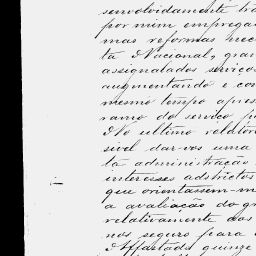 senvolvidamente tra
por mim emprega
mas reformas nec
ta Nacional, gran
assignalados serviços
augmentando e con
mesmo tempo apres
ramo do serviço pu
No ultimo relator
sivel dar-vos uma
ta administração
interesses adstrictos
que orientassem-m
a avaliação do gr
relativamente aos
nos seguro para
Affastado quinze